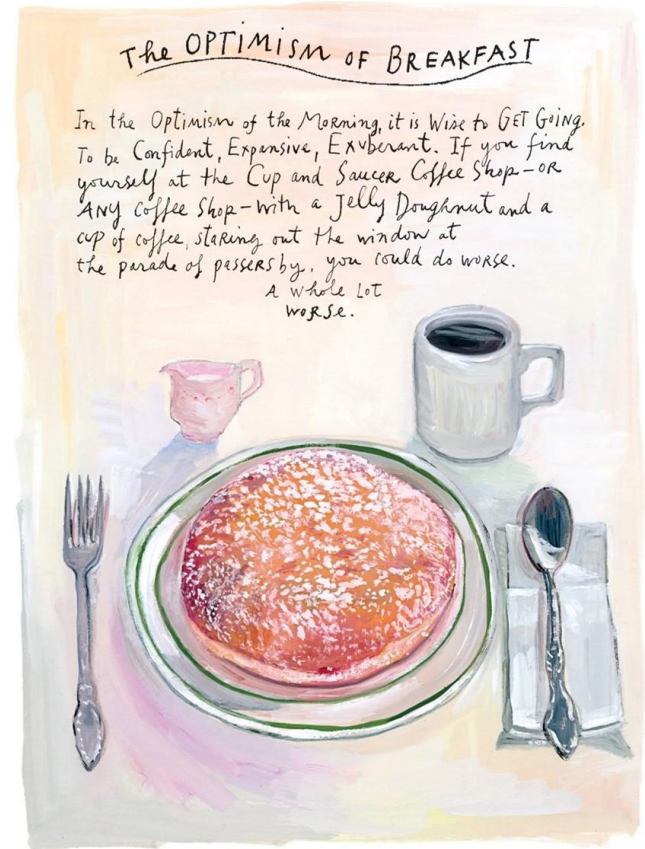 The OPTIMISM OF BREAKFAST
In the Optimism of the Morning, it is Wise to GET GOING.
To be Confident, Expansive, Exuberant. If you find
yourself at the Cup and Saucer Coffee Shop—OR
ANY Coffee Shop—with a Jelly Doughnut and a
cup of coffee, staring out the window at
the parade of passersby, you could do worse.
A whole lot
worse.